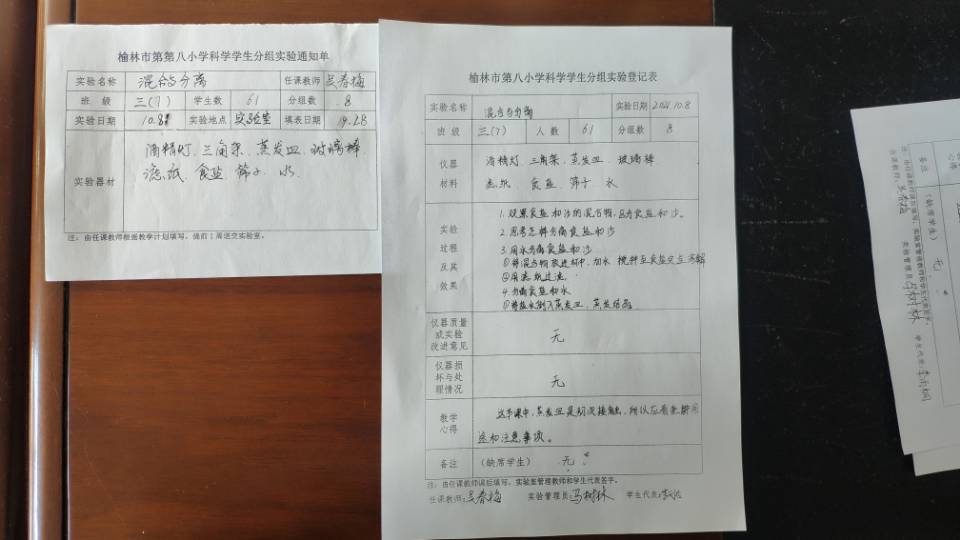 榆林市第第八小学科学学生分组实验通知单
实验名称 混合与分离 任课教师 吴春梅
班 级 三(7) 学生数 61 分组数 8
实验日期 10.8 实验地点 实验室 填表日期 9.28
实验器材
酒精灯、三角架、蒸发皿、玻璃棒、
滤纸、食盐、筛子、水
注：由任课教师根据教学计划填写，提前1周送交实验室。
榆林市第八小学科学学生分组实验登记表
实验名称 混合与分离 实验日期 2021.10.8
班 级 三(7) 人 数 61 分组数 8
仪器 酒精灯 三角架 蒸发皿 玻璃棒
材料 滤纸 食盐 筛子 水
实验
过程
及其
效果
1.观察食盐和沙的混合物,区分食盐和沙。
2.思考怎样分离食盐和沙
3.用水分离食盐和沙
①将混合物放进杯中,加水 搅拌至食盐完全溶解
②用滤纸过滤
4.分离食盐和水
①将盐水倒入蒸发皿,蒸发结晶
仪器质量
或实验
改进意见
无
仪器损
坏与处
理情况
无
教学
心得
这节课中,蒸发皿是初次接触,所以应着重讲用
途和注意事项。
备注 (缺席学生) 无
注：由任课教师课后填写，实验室管理教师和学生代表签字。
任课教师:吴春梅 实验管理员 冯树林 学生代表:
备注
(缺席学生)
无
注：由任课教师课后填写，实验室管理教师和学生代表签字。
任课教师: 实验管理员 冯树林 学生代表